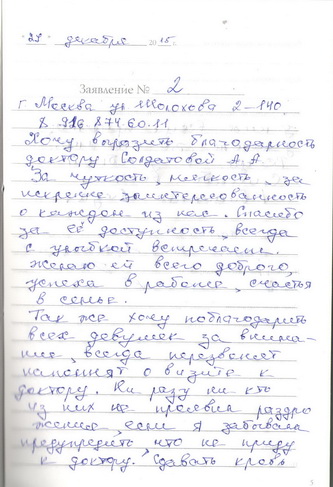 "29" декабря 2015 г.
Заявление № 2
г. Москва ул Шолохова 2-140
8.916.874.60.11
Хочу выразить благодарность
доктору Солдатовой А.А.
За чуткость, мягкость, за
искренню заинтересованность
о каждом из нас. Спасибо
за её доступность, всегда
с улыбкой встречает.
Желаю ей всего доброго,
успеха в работе, счастья
в семье.
Так же хочу поблагодарить
всех девушек за внима-
ние, всегда перезвонят
напомнят о визите к
доктору. Ни разу ни кто
из них не проявил раздра
жение, если я забывала
предупредить, что не приду
к доктору. Сдавать кровь
5